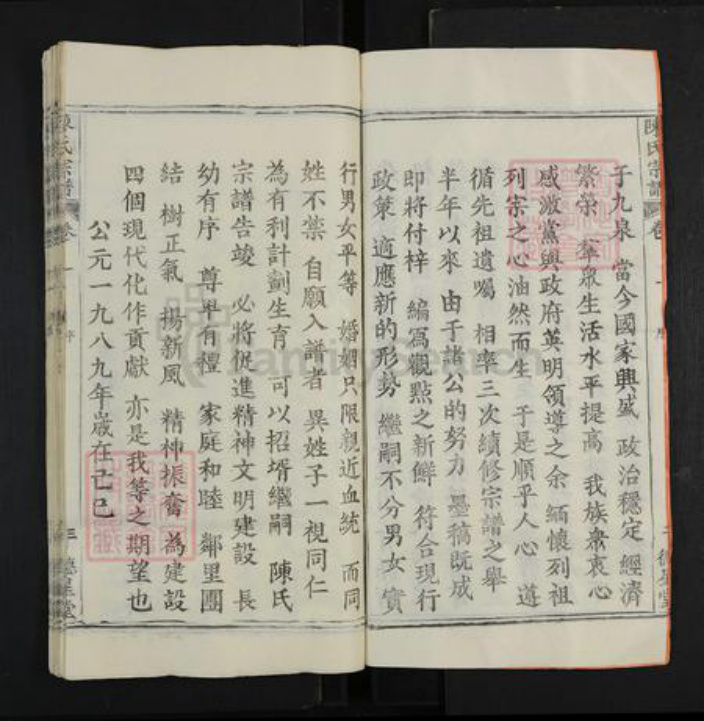 陳氏宗譜
卷一
序
于九泉 當今國家興盛 政治穩定 經濟
繁榮 羣眾生活水平提高 我族衆衷心
感激黨與政府英明領導之余 緬懷列祖
列宗之心油然而生 于是順乎人心 遵
循先祖遺嘱 相率三次續修宗譜之舉
半年以來 由于諸公的努力 墨稿既成
即將付梓 編寫觀點之新鮮 符合現行
政策 適應新的形勢 繼嗣不分男女 實
行男女平等 婚姻只限親近血統 而同
姓不禁 自願入譜者 異姓子一視同仁
為有利計劃生育 可以招壻繼嗣 陳氏
宗譜告竣 必將促進精神文明建設 長
幼有序 尊卑有禮 家庭和睦 鄰里團
結 樹正氣 揚新風 精神振奮 為建設
四個現代化作貢獻 亦是我等之期望也
公元一九八九年歲在亡巳
陳氏宗譜
卷一
序
三
德星堂
FamilySearch